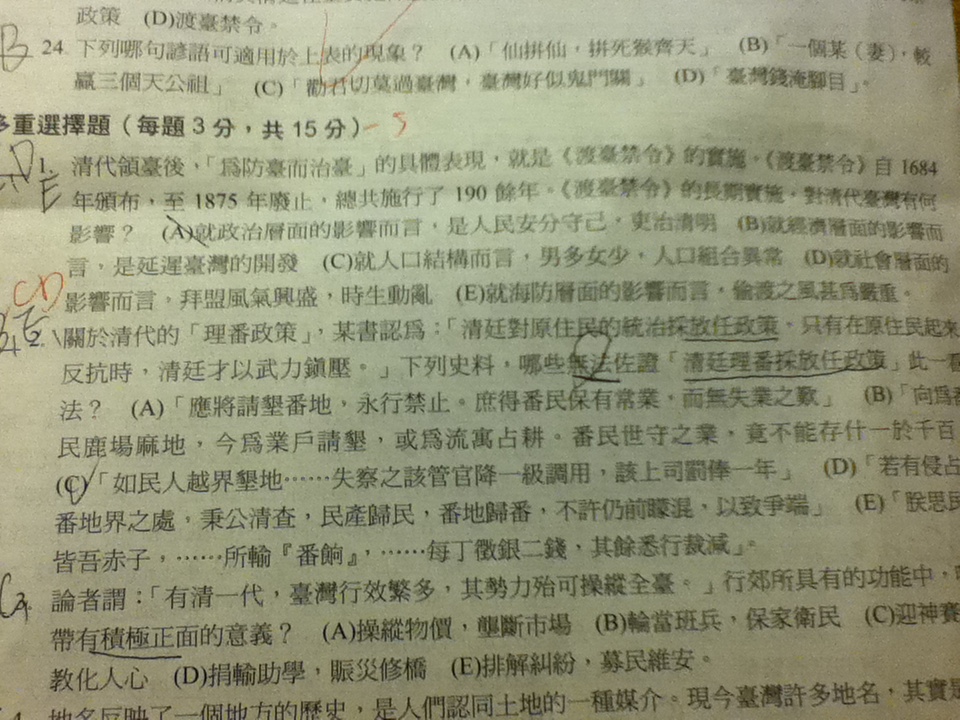 政策 (D)渡臺禁令。
B 24. 下列哪句諺語可適用於上表的現象? (A)「仙拚仙,拚死猴齊天」 (B)「一個某(妻),較
贏三個天公祖」 (C)「勸君切莫過臺灣,臺灣好似鬼門關」 (D)「臺灣錢淹腳目」。
多重選擇題(每題3分,共15分) -5
1. 清代領臺後,「為防臺而治臺」的具體表現,就是《渡臺禁令》的實施。《渡臺禁令》自1684
E 年頒布,至1875年廢止,總共施行了190餘年。《渡臺禁令》的長期實施,對清代臺灣有何
影響? (A)就政治層面的影響而言,是人民安分守己,吏治清明 (B)就經濟層面的影響而
言,是延遲臺灣的開發 (C)就人口結構而言,男多女少,人口組合異常 (D)就社會層面的
CD 影響而言,拜盟風氣興盛,時生動亂 (E)就海防層面的影響而言,偷渡之風甚為嚴重。
2. 關於清代的「理番政策」,某書認為:「清廷對原住民的統治採放任政策,只有在原住民起來
反抗時,清廷才以武力鎮壓。」下列史料,哪些無法佐證「清廷理番採放任政策」此一看
法? (A)「應將請墾番地,永行禁止。庶得番民保有常業,而無失業之歎」 (B)「向為番
民鹿場麻地,今為業戶請墾,或為流寓占耕。番民世守之業,竟不能存什一於千百
(C)「如民人越界墾地……失察之該管官降一級調用,該上司罰俸一年」 (D)「若有侵占
番地界之處,秉公清查,民產歸民,番地歸番,不許仍前曚混,以致爭端」 (E)「朕思民
皆吾赤子,……所輸『番餉』,……每丁徵銀二錢,其餘悉行裁減」。
論者謂:「有清一代,臺灣行效繁多,其勢力殆可操縱全臺。」行郊所具有的功能中,
帶有積極正面的意義? (A)操縱物價,壟斷市場 (B)輪當班兵,保家衛民 (C)迎神賽
教化人心 (D)捐輸助學,賑災修橋 (E)排解糾紛,募民維安。
地名反映了一個地方的歷史,是人們認同土地的一種媒介。現今臺灣許多地名,其實是